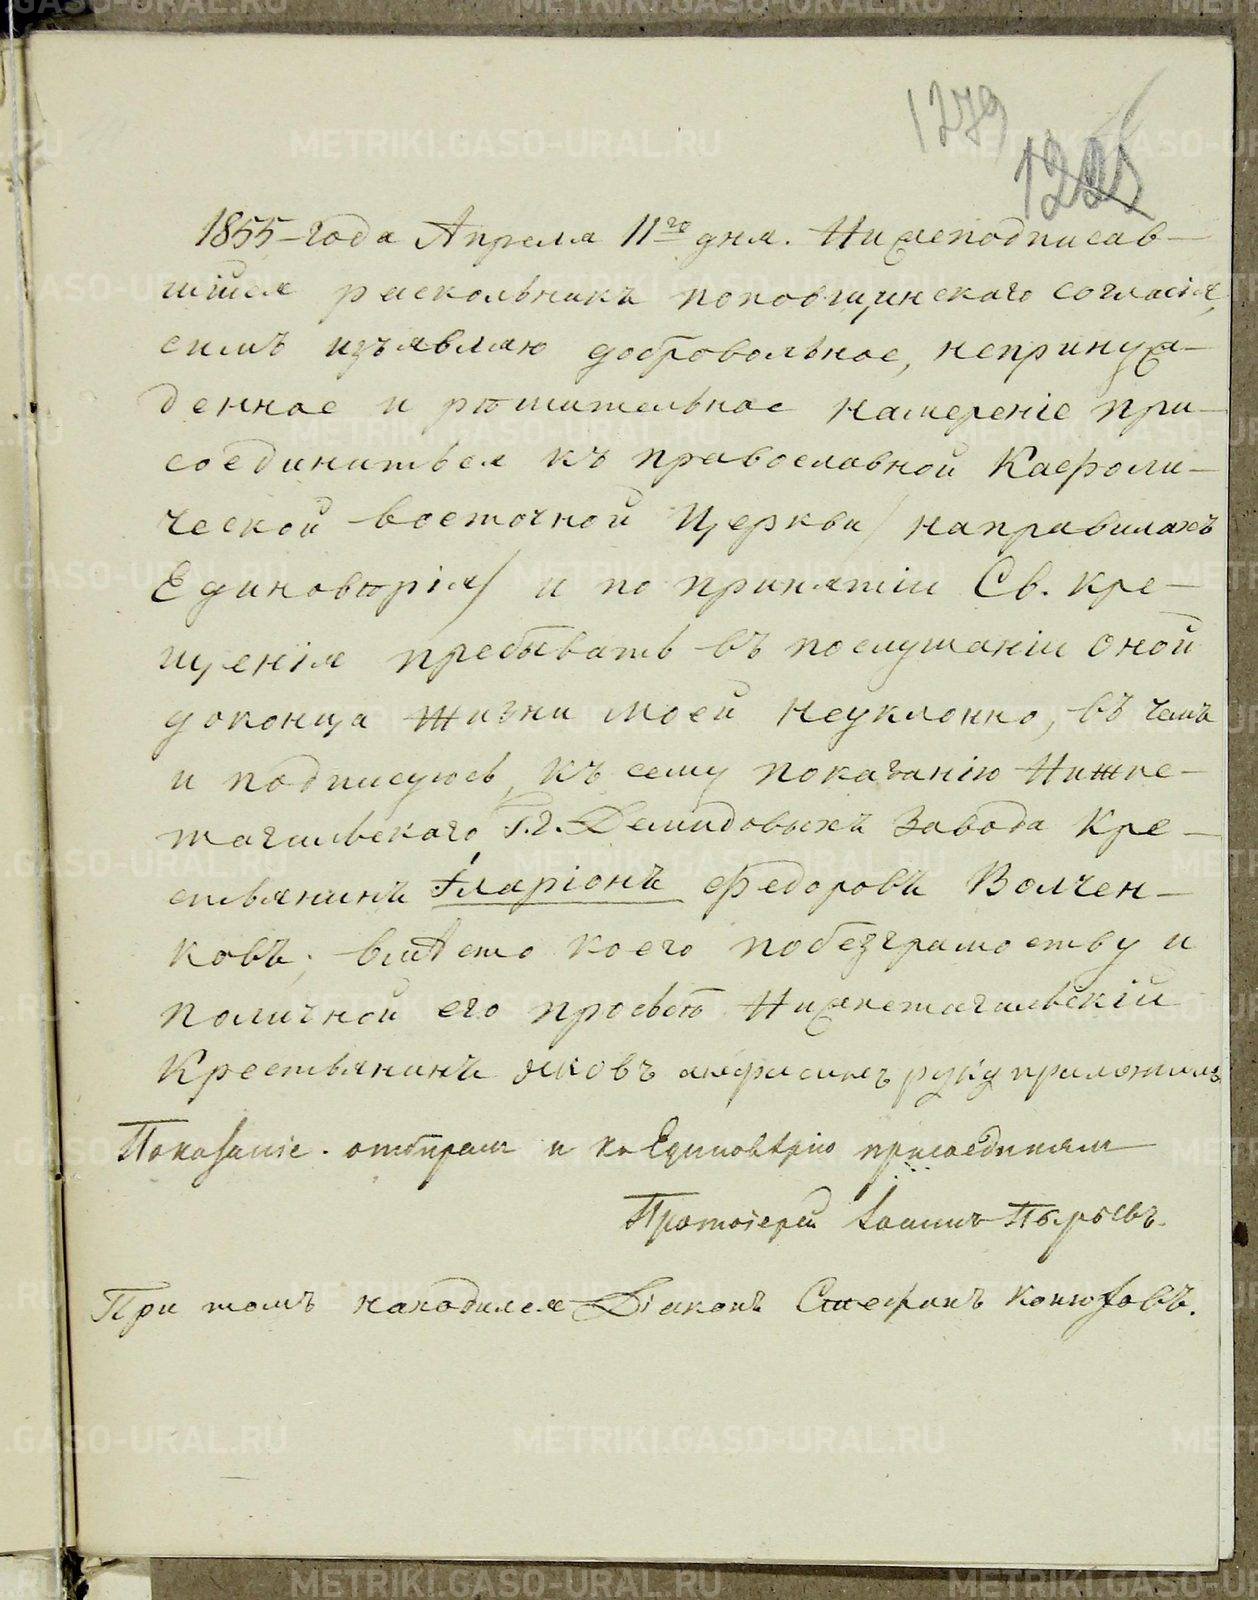 1279
1855 года Апреля 11го дня. Нижеподписав-
шійся раскольникъ поповщинскаго согласія,
симъ изъявляю добровольное, непринуж-
денное и рѣшительное намереніе при-
соединиться къ православной Каѳоли-
ческой восточной Церкви /направилахъ
Единовѣрія/ и по принятіи Св. Кре-
щенія пребывать въ послушаніи оной
доконца жизни моей неуклонно, въ чемъ
и подписуюсь, къ сему показанію Нижне-
тагильскаго Г.г. Демидовыхъ Завода Кре-
стьянинъ Іларіонъ Федоровъ Волчен-
ковъ; вмѣсто коего побезграмоству и
поличной его просьбѣ Нижнетагильскій
Крестьянинъ Яковъ руку приложилъ
Показаніе отбиралъ и къ Единовѣрію присоединялъ
Протоіерей Іоаннъ Пырьевъ.
При томъ находился Діаконъ Стефанъ Конюховъ.
METRIKI.GASO-URAL.RU